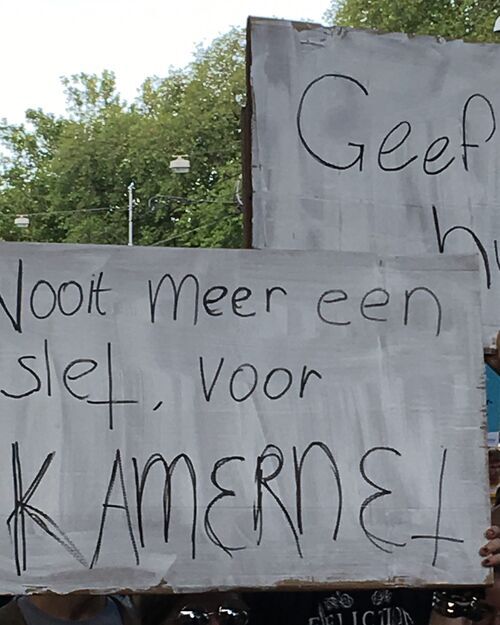 Geef
Nooit meer een
slet, voor
KAMERNET